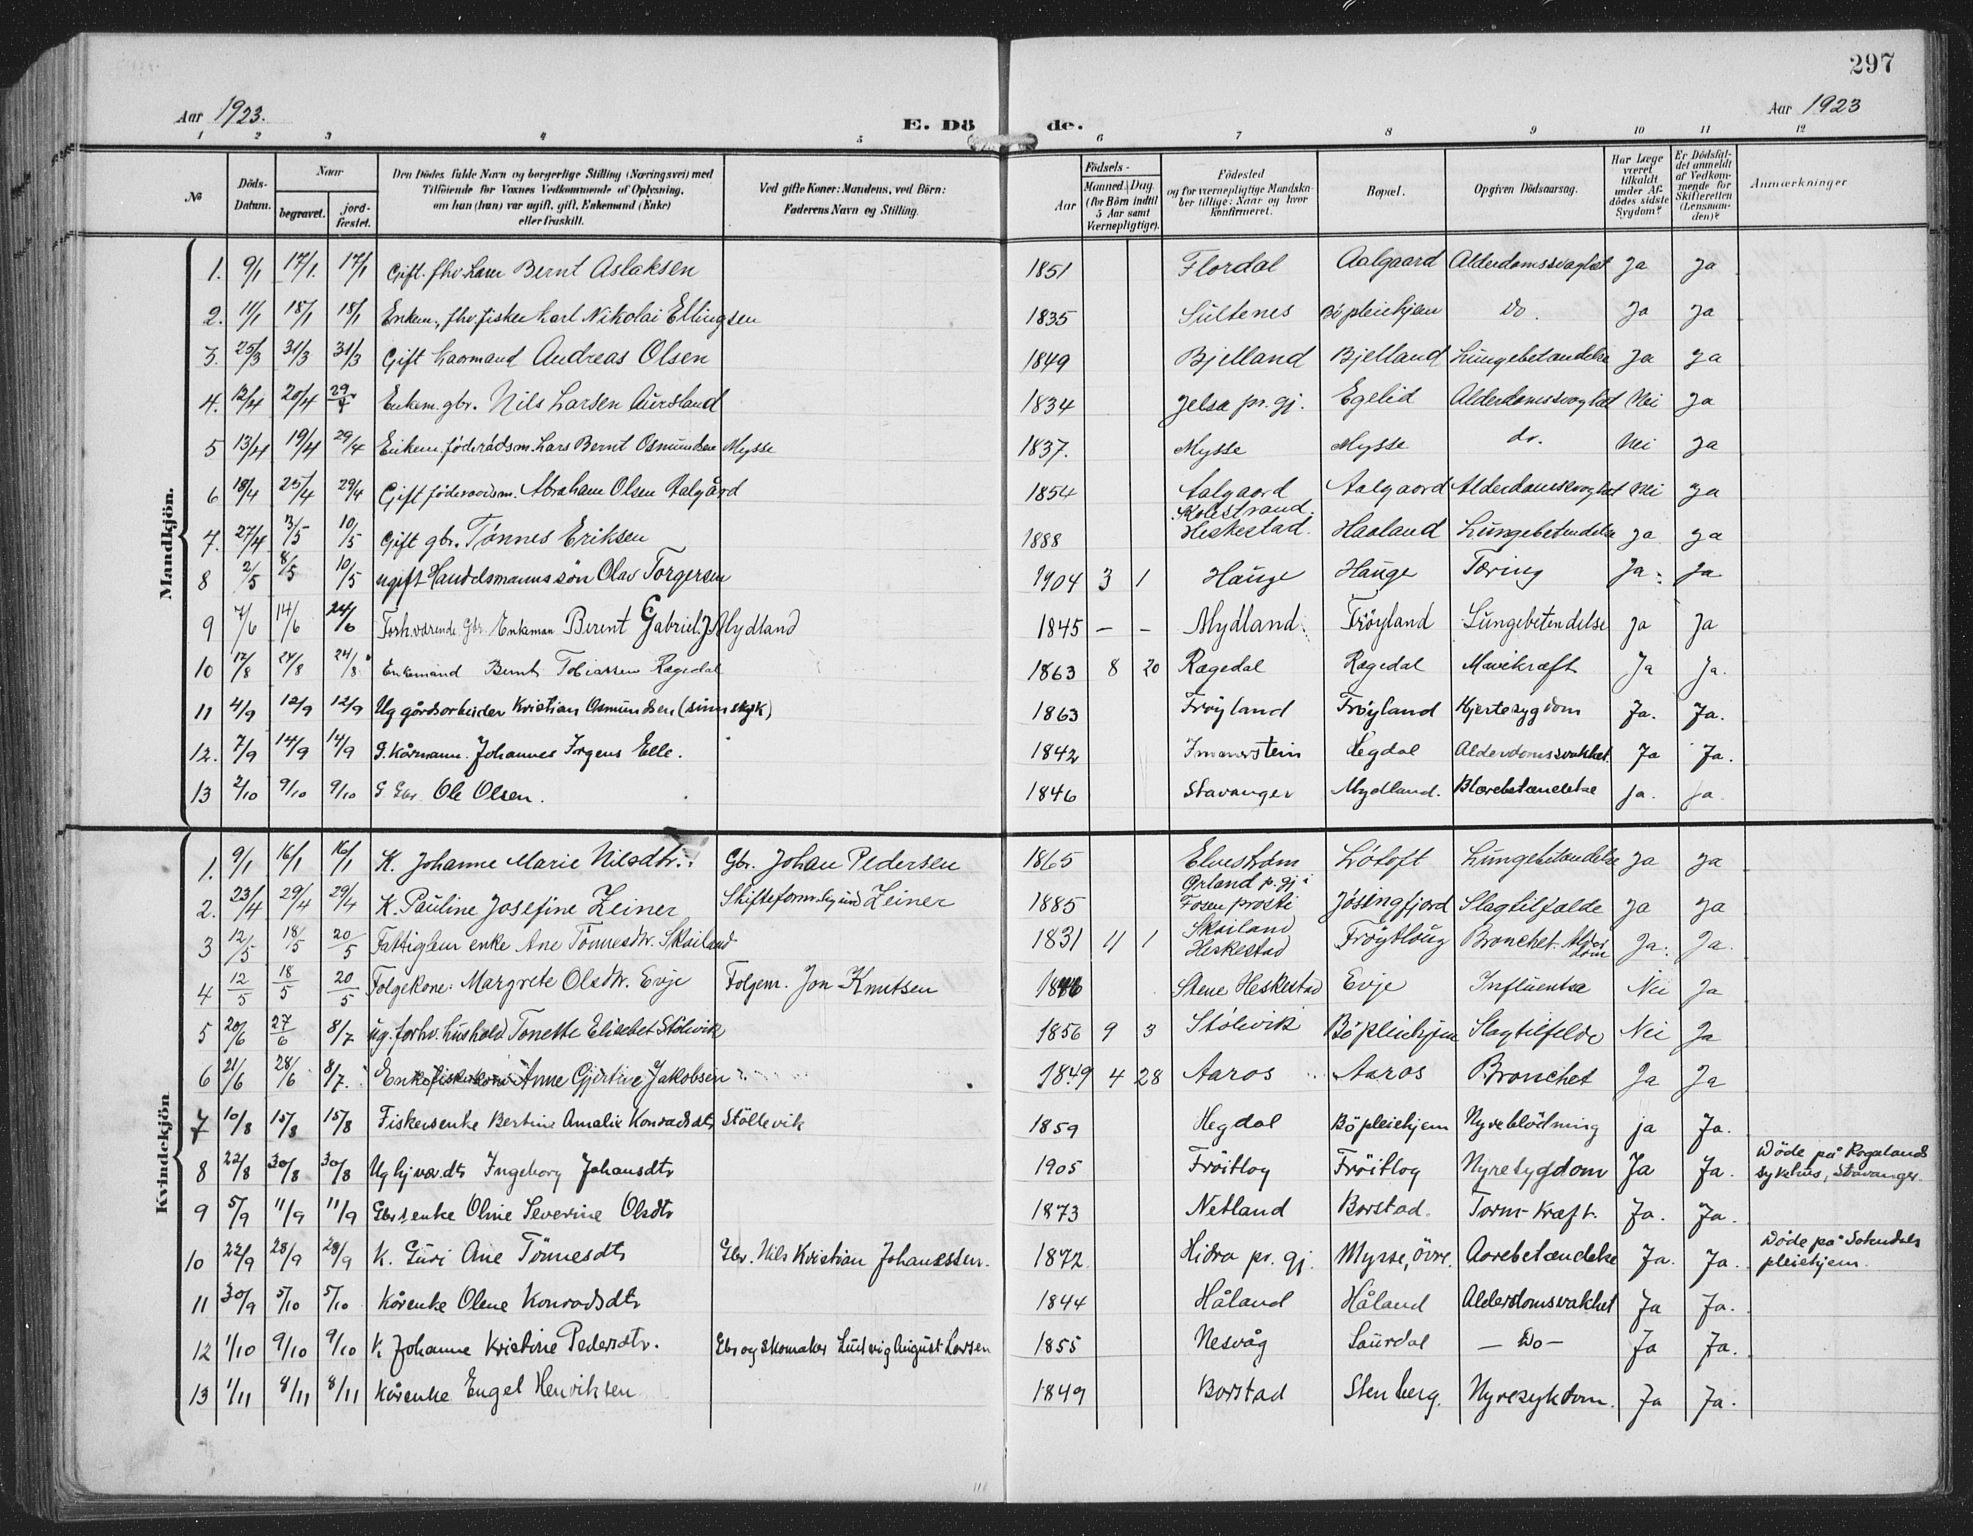 297
Aar 1923.
E. Döde.
Aar 1923
1 2 3 4 5 6 7 8 9 10 11 12
№
Döds-Datum.
Naar
begravet.
jordfæstet.
Den Dödes fulde Navn og borgerlige Stilling (Næringsvei) med Tilföiende for Voxnes Vedkommende af Oplysning, om han (hun) var ugift, gift, Enkemand (Enke) eller fraskilt.
Ved gifte Koner: Mandens, ved Börn: Faderens Navn og Stilling.
Födsels-
Aar
Maaned. Dag (for Börn indtil 5 Aar samt Værnepligtige).
Födested og for værnepligtige Mandskaber tillige: Naar og hvor konfirmeret.
Bopæl.
Opgiven Dödsaarsag.
Har Læge været tilkaldt under Afdödes sidste Sygdom?
Er Dödsfaldet anmeldt af Vedkommende for Skifteretten (Lensmanden)?
Anmærkninger
Mandkjön.
1. 9/1 17/1. 17/1 Gift. fhv. Bernt Aslaksen 1851 Flordal Aalgaard Alderdomssvaghet Ja Ja
2. 11/1 18/1 18/1 Enkem., fhv. fisker Karl Nikolai Ellingsen 1835 Sultenes Bö pleiehjem Do. Ja Ja
3. 25/3 31/3 31/3 Gift Kaarmand Andreas Olsen 1849 Bjelland Bjelland Lungebetændelse Ja Ja
4. 12/4 20/4 29/4 Enkem. gbr. Nils Larsen Aursland 1834 Jelsa pr. gj. Egelid Alderdomssvaghed Nei Ja
5 13/4 19/4 29/4 Enkem. föderådsm. Lars Bernt Osmundsen Mysse 1837. Mysse Mysse do. Nei Ja
6 18/4 25/4 29/4 Gift föderaadsm. Abraham Olsen Aalgård 1854 Aalgaard Aalgaard Alderdomssvaghet Nei Ja
7. 27/4 3/5 10/5 Gift gbr. Tønnes Eriksen 1888 Kolestrand. Heskestad. Haaland Lungebetendelse Ja Ja
8 2/5 8/5 10/5 ugift Handelsmannssön Olav Torgersen 1904 3 1 Hauge Hauge Tæring Ja Ja
9 7/6 14/6 24/6 Forhværende Gbr. Enkeman Berent Gabriel J. Mydland 1845 — – Mydland Frøyland Lungebetendelse Ja Ja
10 17/8 24/8 24/8 Enkemand Bernt Tobiassen Rægedal 1863 8 20 Rægedal Rægedal Mavekræft Ja Ja.
11 4/9 12/9 12/9 Ug gårdsarbeider Kristian Osmundsen (sinnssyk) 1863 Frøyland Frøyland Hjertesygdom Ja. Ja.
12. 7/9 14/9 14/9 G. Kårmann. Johannes Jrgens Elle. 1842 Immerstein Hegdal Alderdomssvakhet Ja Ja.
13 2/10 9/10 9/10 G. Gbr. Ole Olsen. 1846 Stavanger Mydland. Blærebetændelse ja. ja.
Kvindekjön
1. 9/1 16/1 16/1 K. Johanne Marie Nilsdtr. Gbr. Johan Pedersen 1865 Elvestrøm Lótoft Lungebetændelse Ja Ja
2. 23/4 29/4 29/4 K. Pauline Josefine Zeiner Skifteform. Zeiner 1885 Ørland p. gj. i Fosen prosti Jössingfjord Slagtilfælde Ja Ja
3 12/5 18/5 20/5 Fattiglem enke Ane Tønnesdtr. Skåiland 1831 11 1 Skåiland Heskestad Frøytlöug Bronchet. Alderdom Ja. Ja.
4 12/5 18/5 20/5 Folgekone: Margrete Olsdtr. Evje Folgem. Jon Knutsen 1846 Stene Heskestad Evje Influentsa Nei Ja
5 20/6 27/6 8/7 ug. forhv. hushold Tonette Elisebet Stölevik 1856 9 3 Stölevik Bö pleiehjem Slagtilfelde Nei Ja
6 21/6 28/6 8/7. Enke fiskerkone Anne Gjertine Jakobsen 1849 4 28 Aaros Aaros Bronchet Ja Ja
7 10/8 15/8 15/8 Fiskersenke Bertine Amalie Konradsdtr Stöllevik 1859 Hegdal Bö pleiehjem Nyreblödning ja Ja.
8 22/8 30/8 30/8 Ug hjvær. dtr Ingeborg Johansdtr 1905 Fröitlog Fröitlog Nyresygdom Ja Ja. Döde på Rogalands sykehus, Stavanger.
9 5/9 11/9 11/9 Gbrsenke Oline Severine Olsdtr 1873 Netland Barstad. Tarm-Kræft. Ja. Ja.
10 22/9 28/9 28/9 K. Guri Ane Tönnesdtr Gbr. Nils Kristian Johanessen. 1872 Hidra pr. gj. Mysse, övre. Aarebetændelse Ja. Ja. Döde på Sokndals pleiehjem.
11 30/9 5/10 5/10 Kårenke Olene Konradsdtr 1844 Håland Håland Alderdomsvakhet Ja Ja.
12 1/10 9/10 9/10 K Johanne Kristine Pedersdtr. Gbr og skomaker Ludvig August Larsen 1855 Nesvåg Saurdal — Do — Ja Ja.
13 1/11 8/11 8/11 Kårenke Engel Henriksen 1849 Barstad Stenberg. Nyresykdom. Ja Ja.